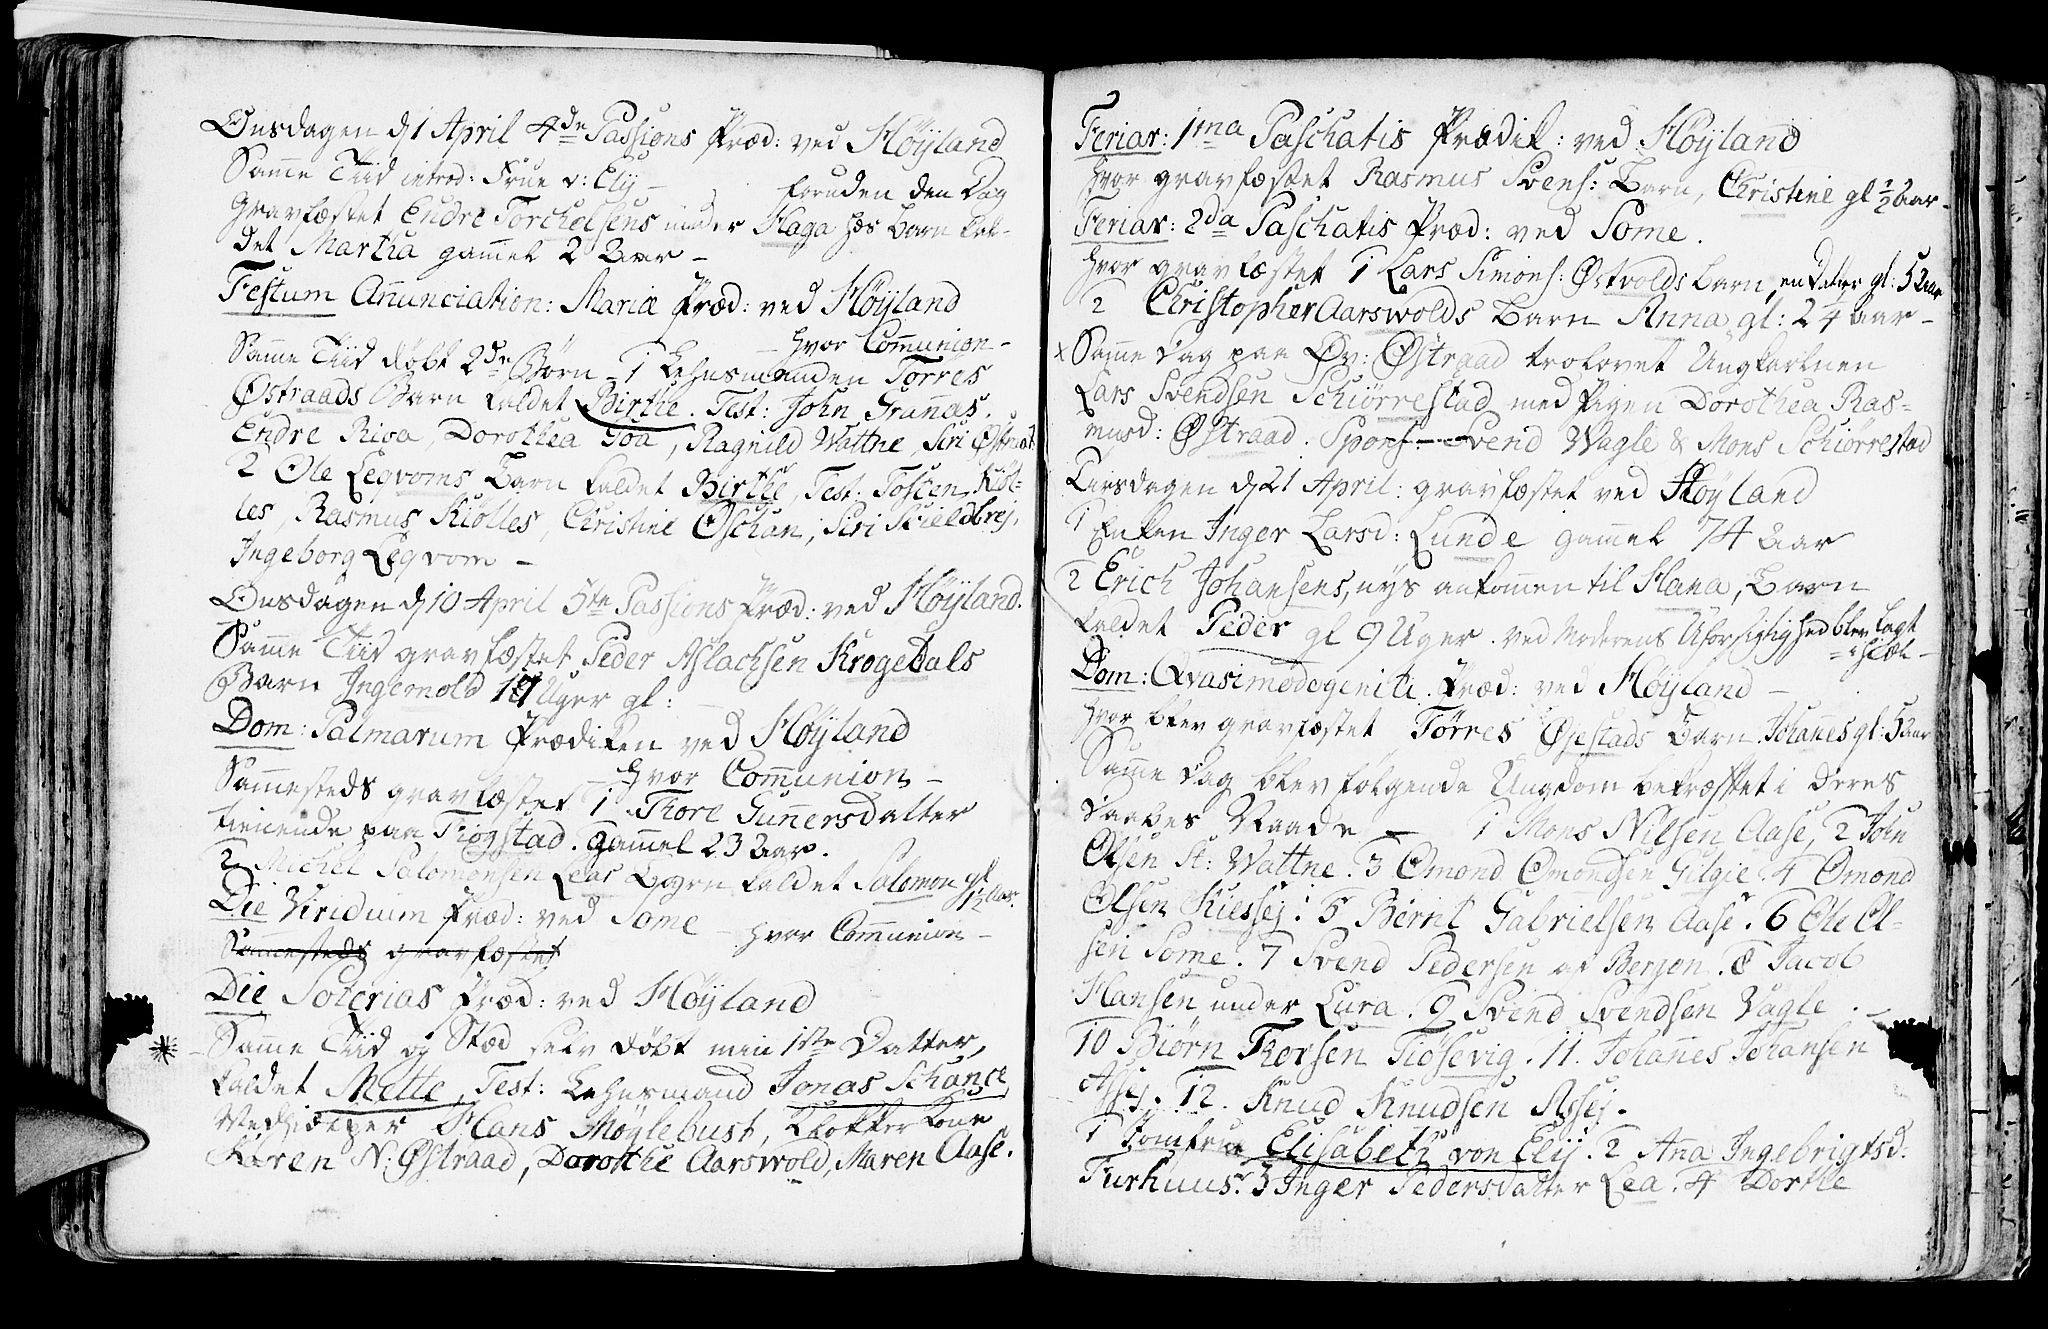 Onsdagen d 1 April 4de Passions Præd: ved Höyland
Samme Tiid introd: Frue v: Elÿ –
foruden den Dag
Gravfæstet Endre Torchelsens under Haga hos Barn kal-
det Martha gammel 2 Aar –
Festum Anunciation: Mariæ Præd: ved Höyland
– hvor Communion –
Samme Tiid döbt 2de Börn – 1 Lehnsmanden Torres
Østraads Barn kaldet Birthe. Test: John Grannas.
Endre Riva, Dorothea Goa, Ragnild Wattne, Siri Østraat
2 Ole Leqvoms Barn kaldet Birthe, Test: Tosten Kiöl-
les, Rasmus Kiölles, Christine Oschan, Siri Skieldbrej,
Ingeborg Leqvom –
Onsdagen d 10 April 5te Passions Præd: ved Höyland.
Samme Tiid gravfæstet Peder Aslachsen Krogedals
Barn Ingemold 19 Uger gl:
Dom: Palmarum Prædiken ved Höyland
– hvor Communion –
Sammesteds gravfæstet 1 Thore Gunnersdatter
tienende paa Frogstad. gammel 23 Aar.
2 Michel Salomonsen Leas Barn kaldet Salomon gl
1½ Aar.
Die Viridium Præd: ved Some – hvor Communion –
Sammesteds gravfæstet
Die Soterias Præd: ved Höyland
Samme Tiid og Stæd selv döbt min 1ste Datter,
kaldet Mette, Test: Lehnsmand Jonas Schance
Medhielper Hans Möglebust, Klokker Kone
Karen N: Østraad, Dorothe Aarswold, Maren Aase.
Feriar: 1ma Paschatis Prædik: ved Höyland
hvor gravfæstet Rasmus Svens: Barn, Christine gl ½ Aar –
Feriar: 2da Paschatis Præd: ved Some.
hvor gravfæstet 1 Lars Simons: Østvolds Barn, en Datter gl: 5 Aar
2 Christopher Aarswolds Barn Anna gl: 24 Aar –
x Samme Dag paa Øv: Østraad trolovet Ungkarlen
Lars Svendsen Schiörrestad med Pigen Dorothea Ras-
musd: Østraad. Spons– Svend Wagle & Mons Schiörrestad
Tirsdagen d 21 April: gravfæstet ved Höyland
1 Enken Inger Larsd: Lunde gammel 74 Aar
2 Erich Johansens, nys ankommen til Hana, Barn
kaldet Peder gl 9 Uger. ved Moderens Uforsigtighed blev lagt
– ihiæl –
Dom: Qvasimodogeniti. Præd: ved Höyland –
hvor blev gravfæstet Törres Øÿestads Barn Johannes gl: 5 Aar
Samme Dag blev fölgende Ungdom bekræftet i deres
Daabes Naade – 1 Mons Nilsen Aase, 2 John
Olsen St: Wattne. 3 Omond Omondsen Gilgie. 4 Omond
Olsen Kiessej. 5 Bernt Gabrielsen Aase. 6 Ole Ol-
sen Some. 7 Svend Pedersen af Bergen. 8 Jacob
Hansen under Lura. 9 Svend Svendsen Vagle. –
10 Biörn Thorsen Tiösevig. 11. Johannes Johansen
Assej. 12. Knud Knudsen Assej.
1 Jomfrue Elisabeth von Elÿ. 2 Anna Ingebrigtsd.
Furhuus. 3 Inger Pedersdatter Lea. 4 Dorthe